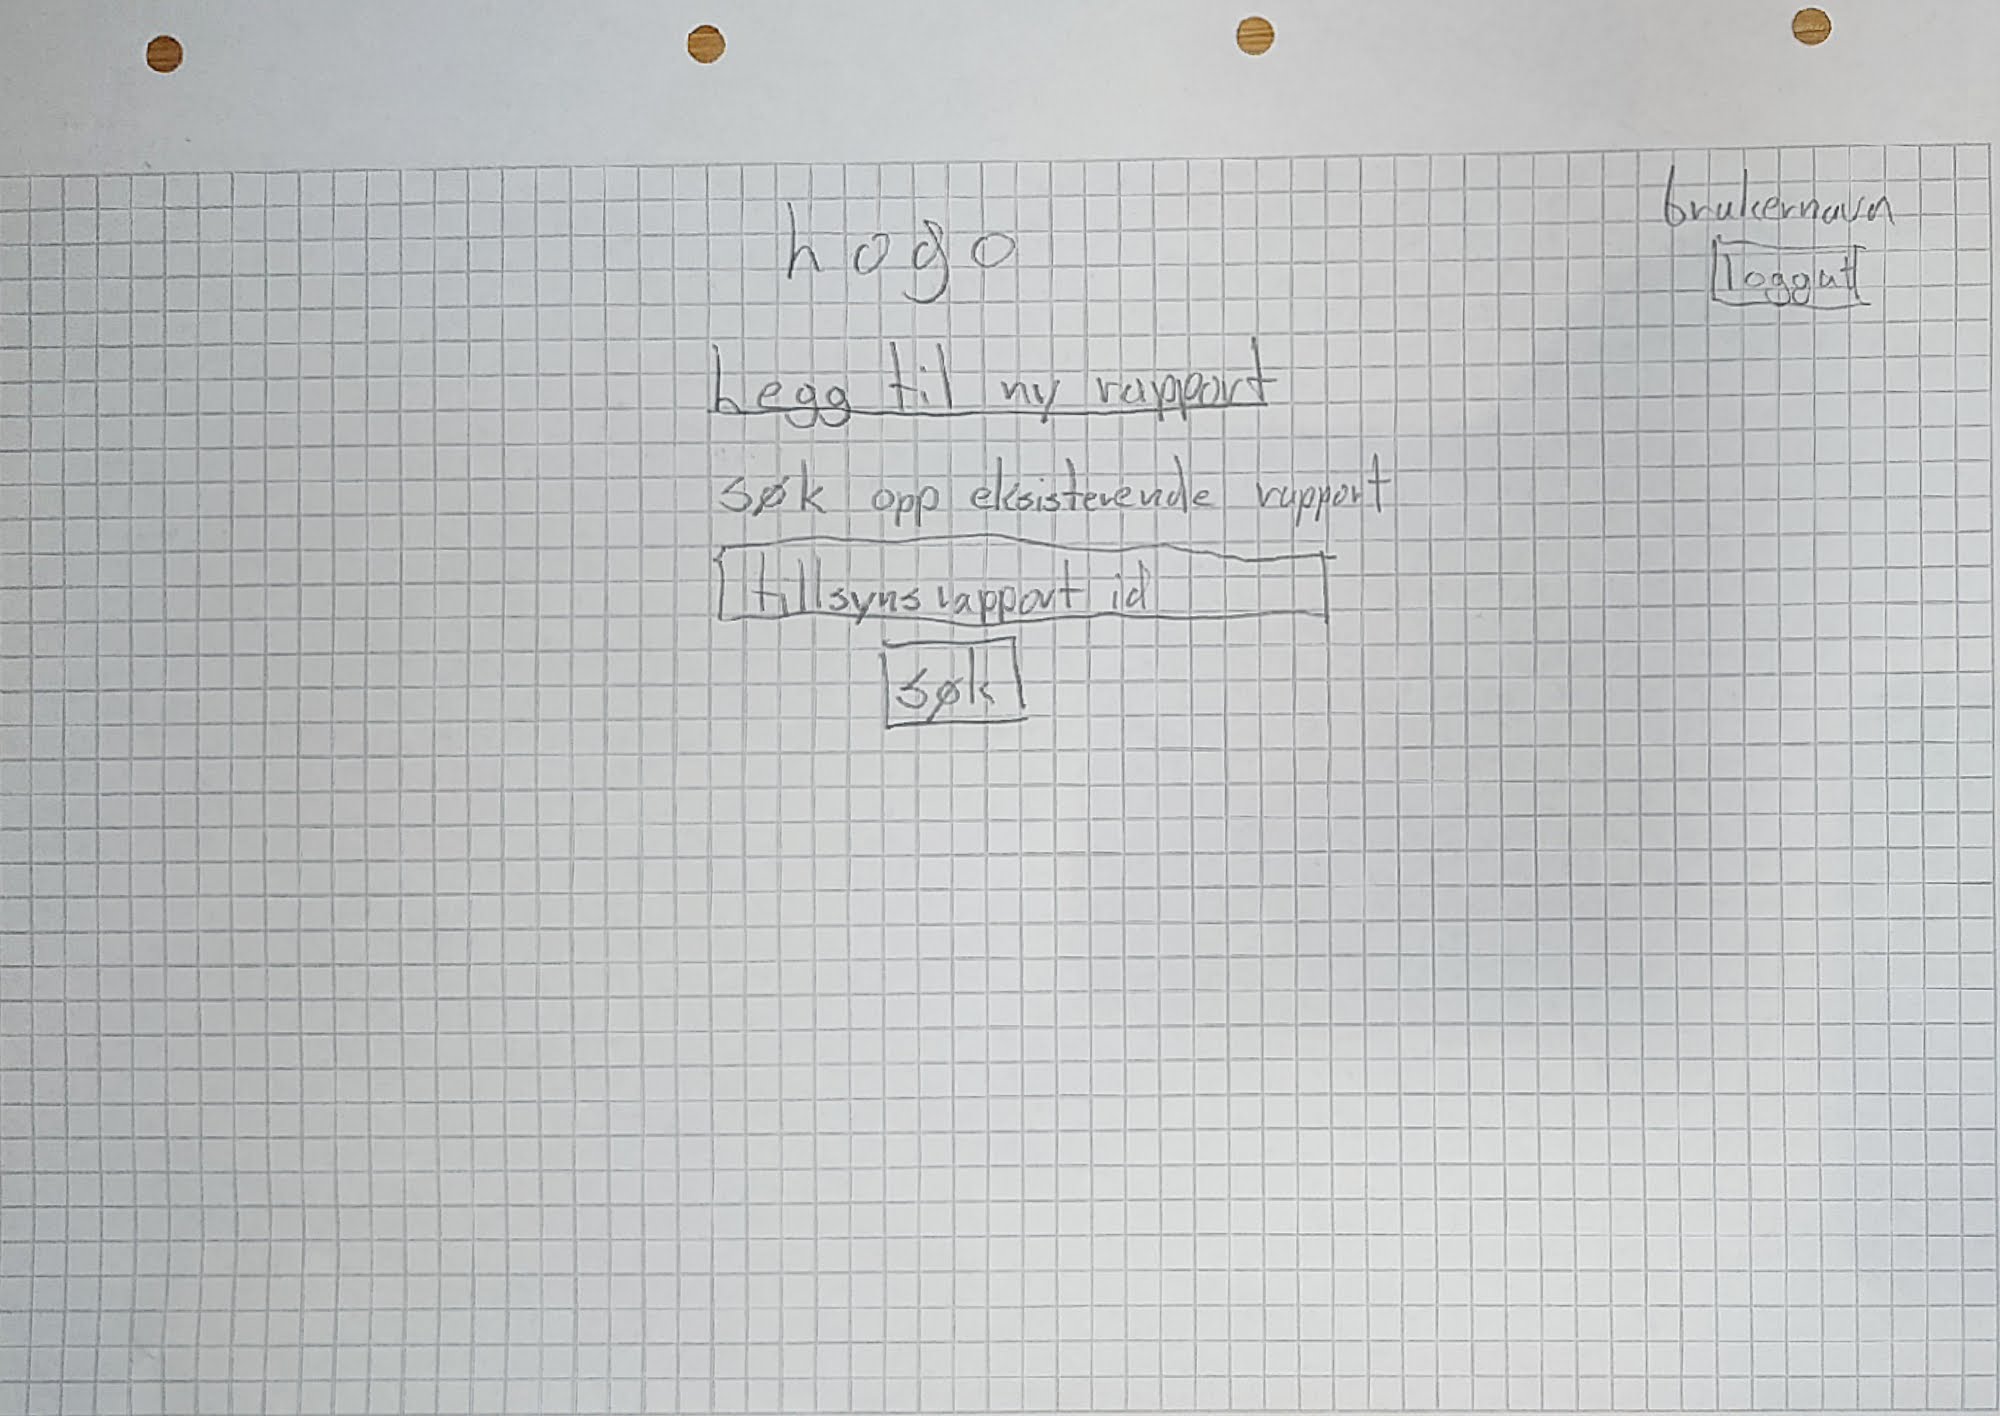 logo
brukernavn
loggut
Legg til ny rapport
søk opp eksisterende rapport
tillsyns rapport id
søk